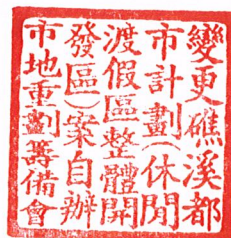 變更礁溪都
市計劃(休閒
渡假區整體開
發區)案自辦
市地重劃籌備會